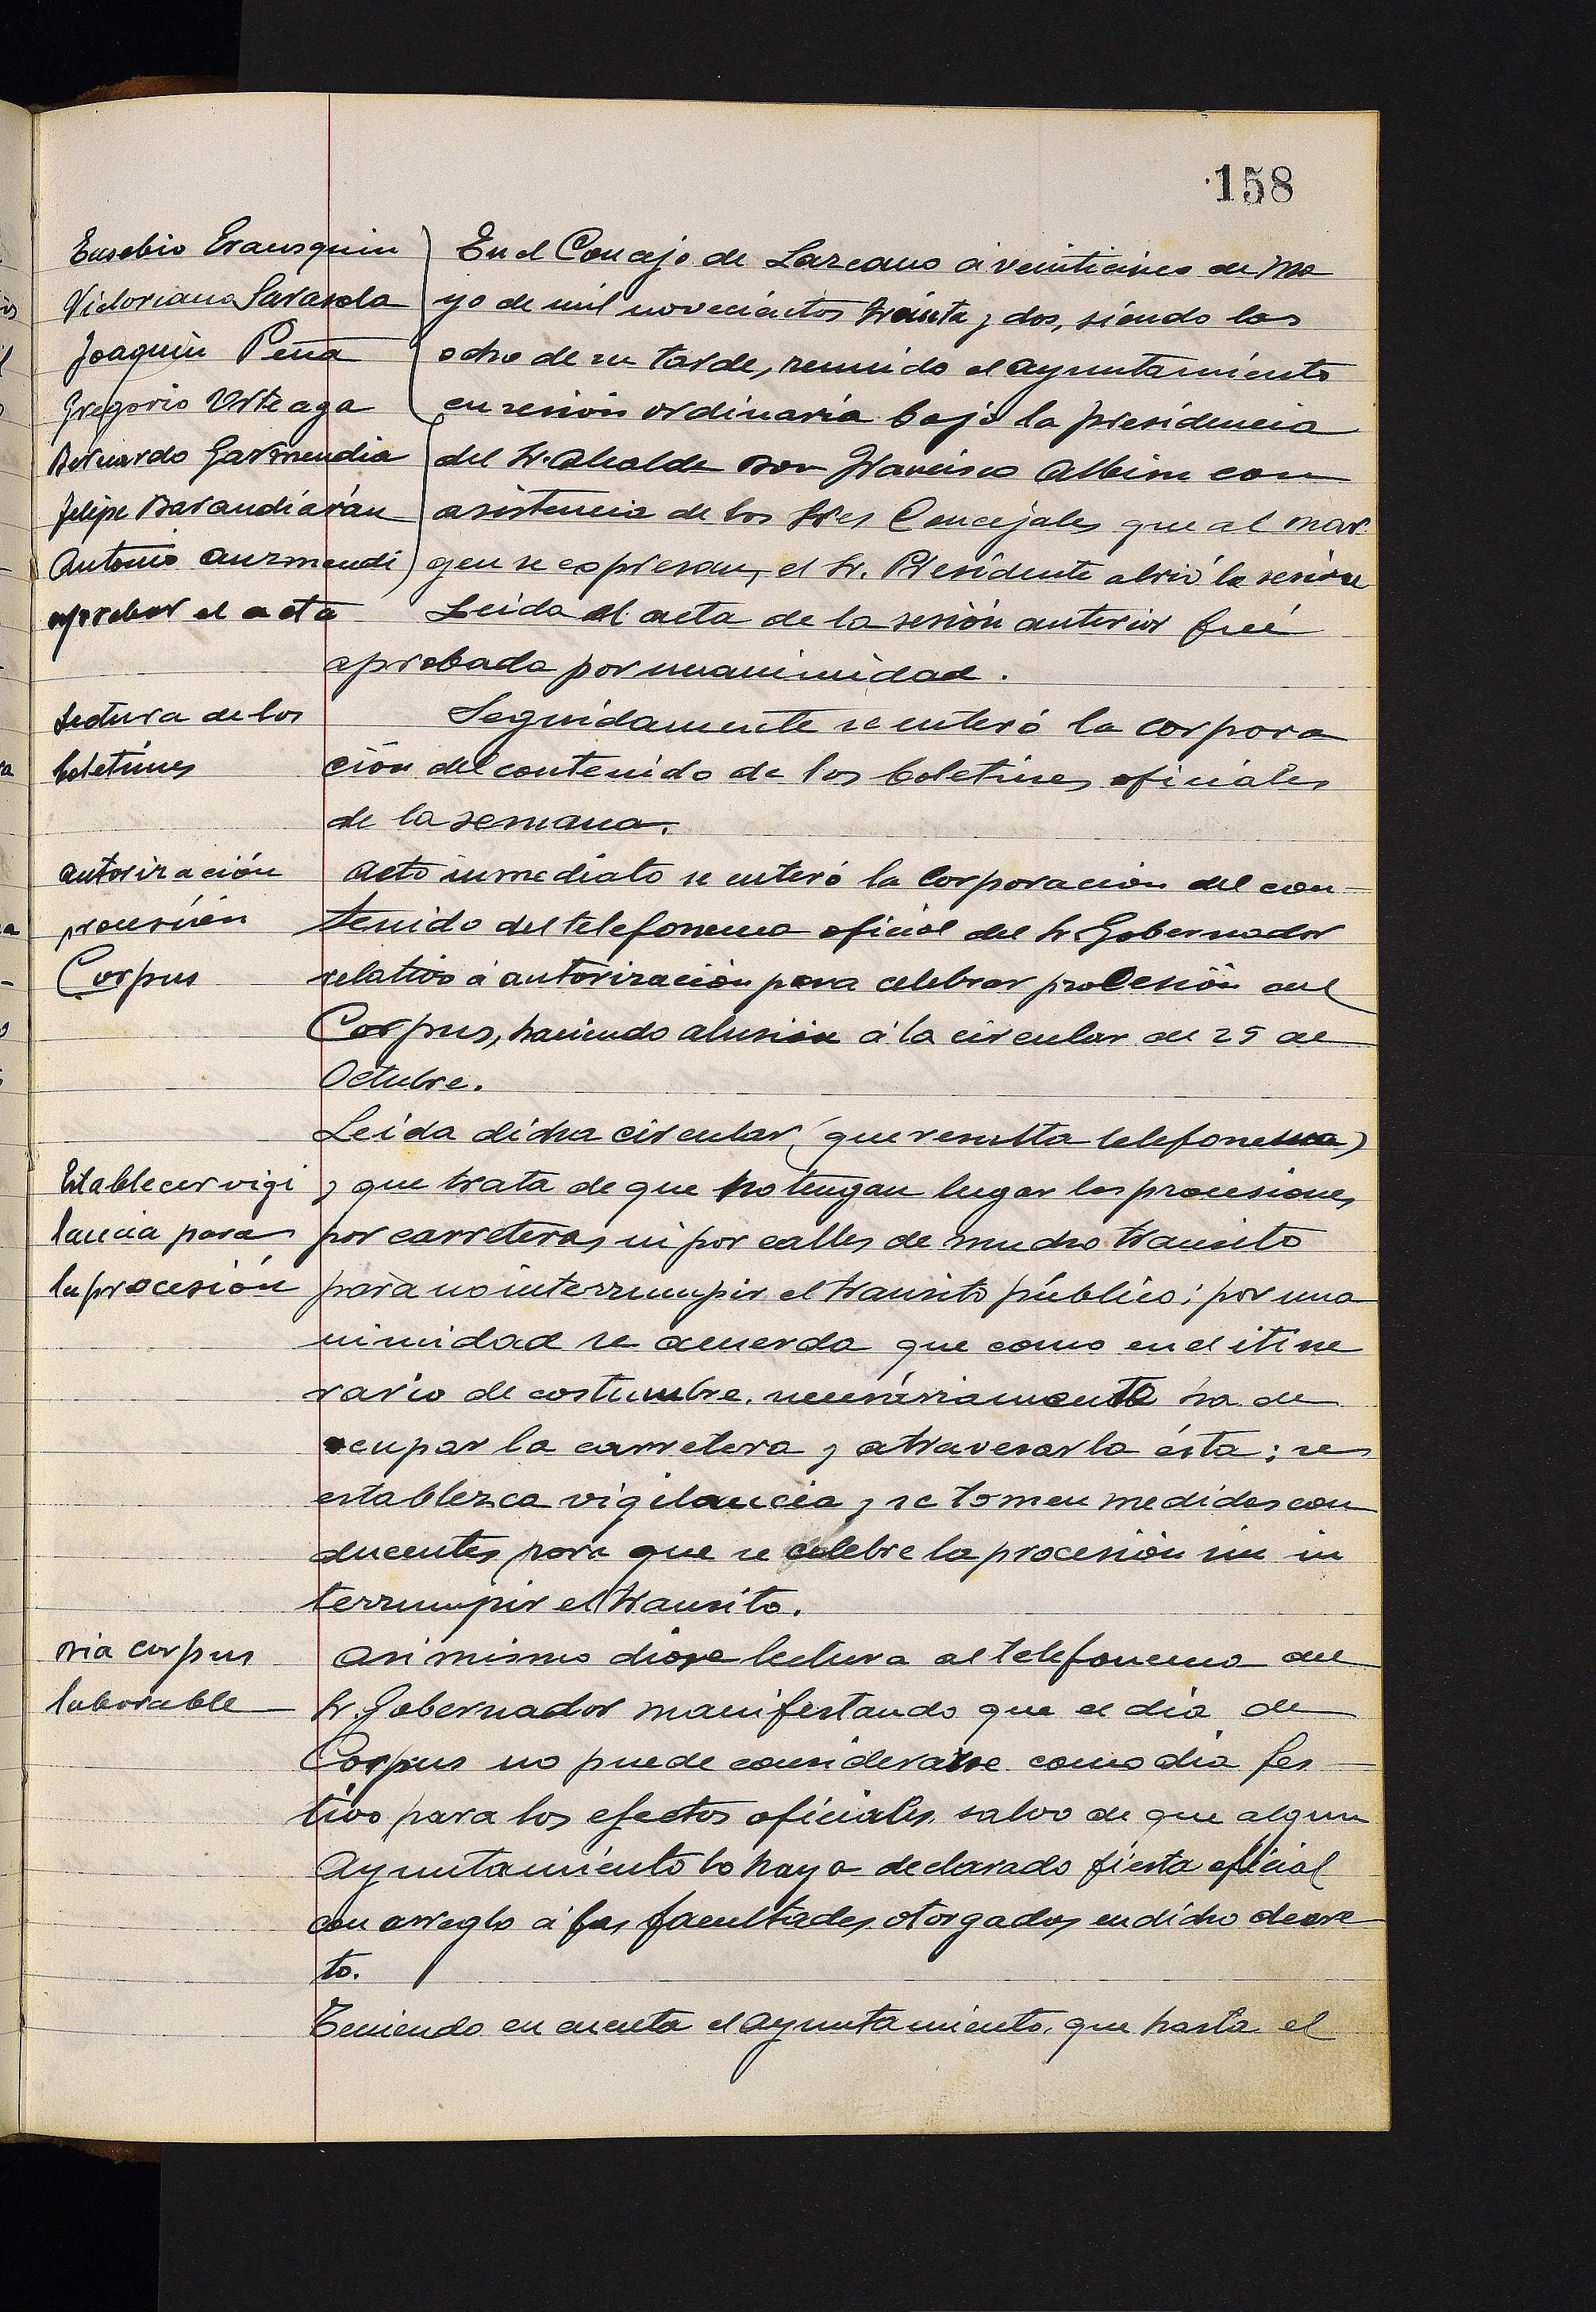 158
Eusebio Erausquin
Victoriano Sarasola
Joaquin Peña
Gregorio Urteaga
Bernardo Garmendia
Felipe Barandiarán
Antonio Auzmendi
En el Concejo de Lazcano á veinticinco de Ma
yo de mil novecientos treinta y dos, siendo las
ocho de su tarde, reunido el Ayuntamiento
en sesión ordinaria bajo la presidencia
del Sr. Alcalde Don Francisco Albisu con
asistencia de los Sres Concejales que al mar
gen se expresan, el Sr. Presidente abrió la sesión
aprobar el acta
Leida el acta de la sesión anterior fué
aprobada por unanimidad.
Lectura de los
boletines
Seguidamente se enteró la corpora
ción del contenido de los boletines oficiales
de la semana.
autorización
procesión
Corpus
Acto inmediato se enteró la Corporación del con-
tenido del telefonema oficial del Sr. Gobernador
relativo á autorización para celebrar procesión del
Corpus, haciendo alusión á la circular de 25 de
Octubre.
Leida dicha circular (que resulta telefonema)
Establecer vigi
lancia para
la procesión
y que trata de que no tengan lugar las procesiones
por carreteras ni por calles de mucho transito
para no interrumpir el transito público; por una
nimidad se acuerda que como en el itine
rario de costumbre, necesáriamente ha de
ocupar la carretera y atravesarla ésta; se
establezca vigilancia y se tomen medidas con
ducentes para que se celebre la procesión sin in
terrumpir el transito.
Dia corpus
laborable
Asi mismo dióse lectura al telefonema del
Sr. Gobernador manifestando que el dia de
Corpus no puede considerarse como dia fes-
tivo para los efectos oficiales, salvo de que algun
Ayuntamiento lo haya declarado fiesta oficial
con arreglo á las facultades otorgadas en dicho decre
to.
Teniendo en cuenta el Ayuntamiento, que hasta el